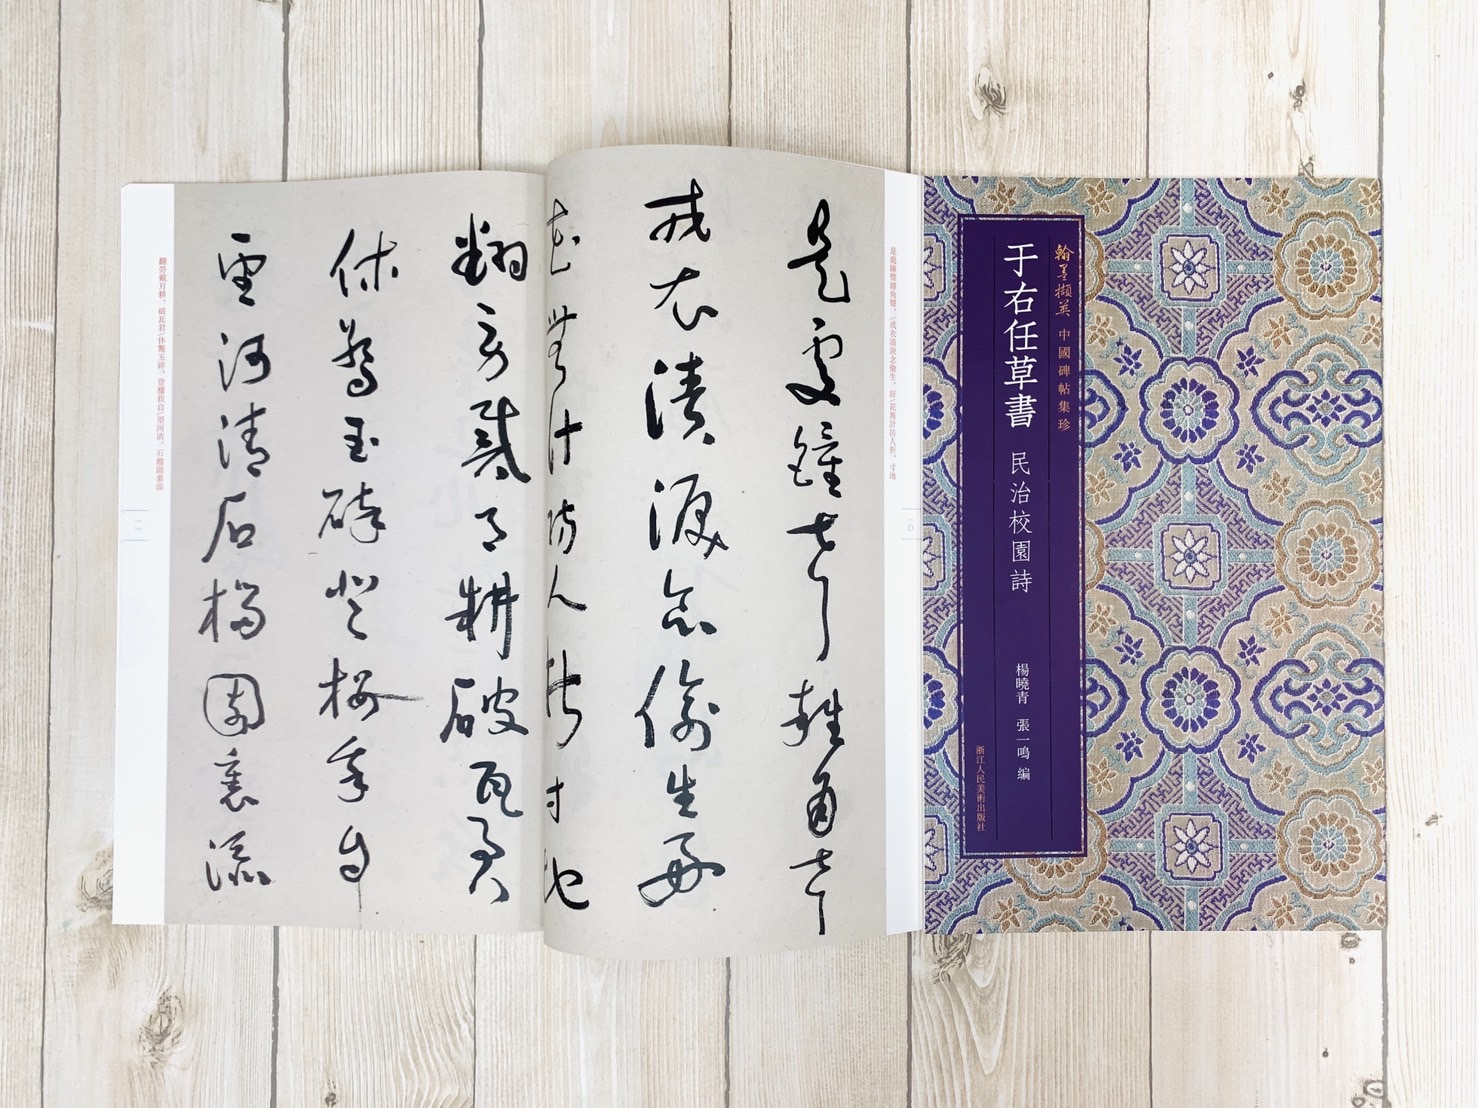 翰墨擷英 中國碑帖集珍
于右任草書 民治校園詩
楊曉青 張一鳴 編
浙江人民美術出版社
是處鐘聲雜角聲,/戎衣漬淚念偷生。好/花無計防人折,寸地
是處鐘聲雜角聲
戎衣漬淚念偷生好
花無計防人折寸地
翻勞戴月耕破瓦君
休驚玉碎登樓我自
望河清石榴園裏流
翻勞戴月耕。破瓦君/休驚玉碎,登樓我自/望河清。石榴園裏